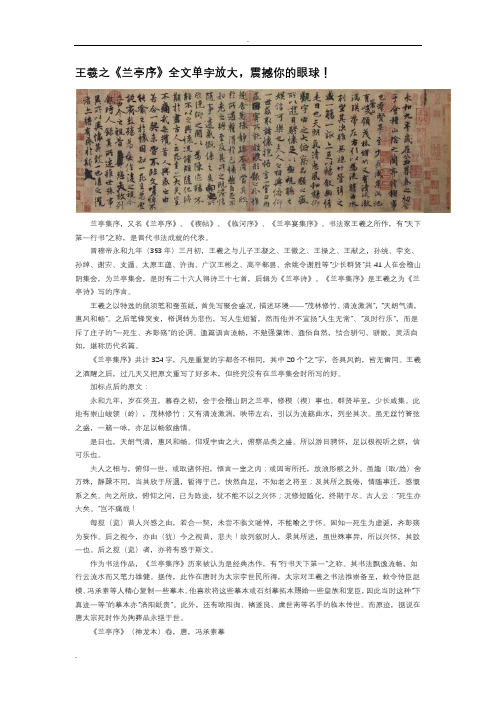 王羲之《兰亭序》全文单字放大，震撼你的眼球！
兰亭集序，又名《兰亭序》、《禊帖》、《临河序》、《兰亭宴集序》。书法家王羲之所作，有"天下
第一行书"之称，是晋代书法成就的代表。
晋穆帝永和九年（353 年）三月初，王羲之与儿子王凝之、王徽之、王操之、王献之，孙统、李充、
孙绰、谢安、支遁、太原王蕴、许询、广汉王彬之、高平郗昙、余姚令谢胜等"少长群贤"共 41 人在会稽山
阴集会，为兰亭集会，是时有二十六人得诗三十七首，后辑为《兰亭诗》。《兰亭集序》是王羲之为《兰
亭诗》写的序言。
王羲之以特选的鼠须笔和蚕茧纸，首先写聚会盛况，描述环境——"茂林修竹、清流激湍"，"天朗气清，
惠风和畅"。之后笔锋突变，格调转为悲伤，写人生短暂，然而他并不宣扬"人生无常"、"及时行乐"，而是
斥了庄子的"一死生、齐彭殇"的论调。通篇语言流畅，不勉强藻饰、通俗自然，结合骈句、骈散，灵活自
如，堪称历代名篇。
《兰亭集序》共计 324 字，凡是重复的字都各不相同，其中 20 个"之"字，各具风韵，皆无雷同。王羲
之酒醒之后，过几天又把原文重写了好多本，但终究没有在兰亭集会时所写的好。
加标点后的原文：
永和九年，岁在癸丑，暮春之初，会于会稽山阴之兰亭，修稧（禊）事也。群贤毕至，少长咸集。此
地有崇山峻领（岭），茂林修竹；又有清流激湍，映带左右，引以为流觞曲水，列坐其次。虽无丝竹管弦
之盛，一觞一咏，亦足以畅叙幽情。
是日也，天朗气清，惠风和畅。仰观宇宙之大，俯察品类之盛。所以游目骋怀，足以极视听之娱，信
可乐也。
夫人之相与，俯仰一世，或取诸怀抱，悟言一室之内；或因寄所托，放浪形骸之外。虽趣（取/趋）舍
万殊，静躁不同，当其欣于所遇，暂得于己，快然自足，不知老之将至；及其所之既倦，情随事迁，感慨
系之矣。向之所欣，俯仰之间，已为陈迹，犹不能不以之兴怀；况修短随化，终期于尽。古人云："死生亦
大矣。"岂不痛哉！
每揽（览）昔人兴感之由，若合一契，未尝不临文嗟悼，不能喻之于怀。固知一死生为虚诞，齐彭殇
为妄作。后之视今，亦由（犹）今之视昔，悲夫！故列叙时人，录其所述，虽世殊事异，所以兴怀，其致
一也。后之揽（览）者，亦将有感于斯文。
作为书法作品，《兰亭集序》历来被认为是经典杰作，有"行书天下第一"之称。其书法飘逸流畅，如
行云流水而又笔力雄健。据传，此作在唐时为太宗李世民所得，太宗对王羲之书法推崇备至，敕令侍臣赵
模、冯承素等人精心复制一些摹本。他喜欢将这些摹本或石刻摹拓本赐给一些皇族和宠臣，因此当时这种"下
真迹一等"的摹本亦"洛阳纸贵"。此外，还有欧阳询、褚遂良、虞世南等名手的临本传世。而原迹，据说在
唐太宗死时作为殉葬品永绝于世。
《兰亭序》（神龙本）卷，唐，冯承素摹